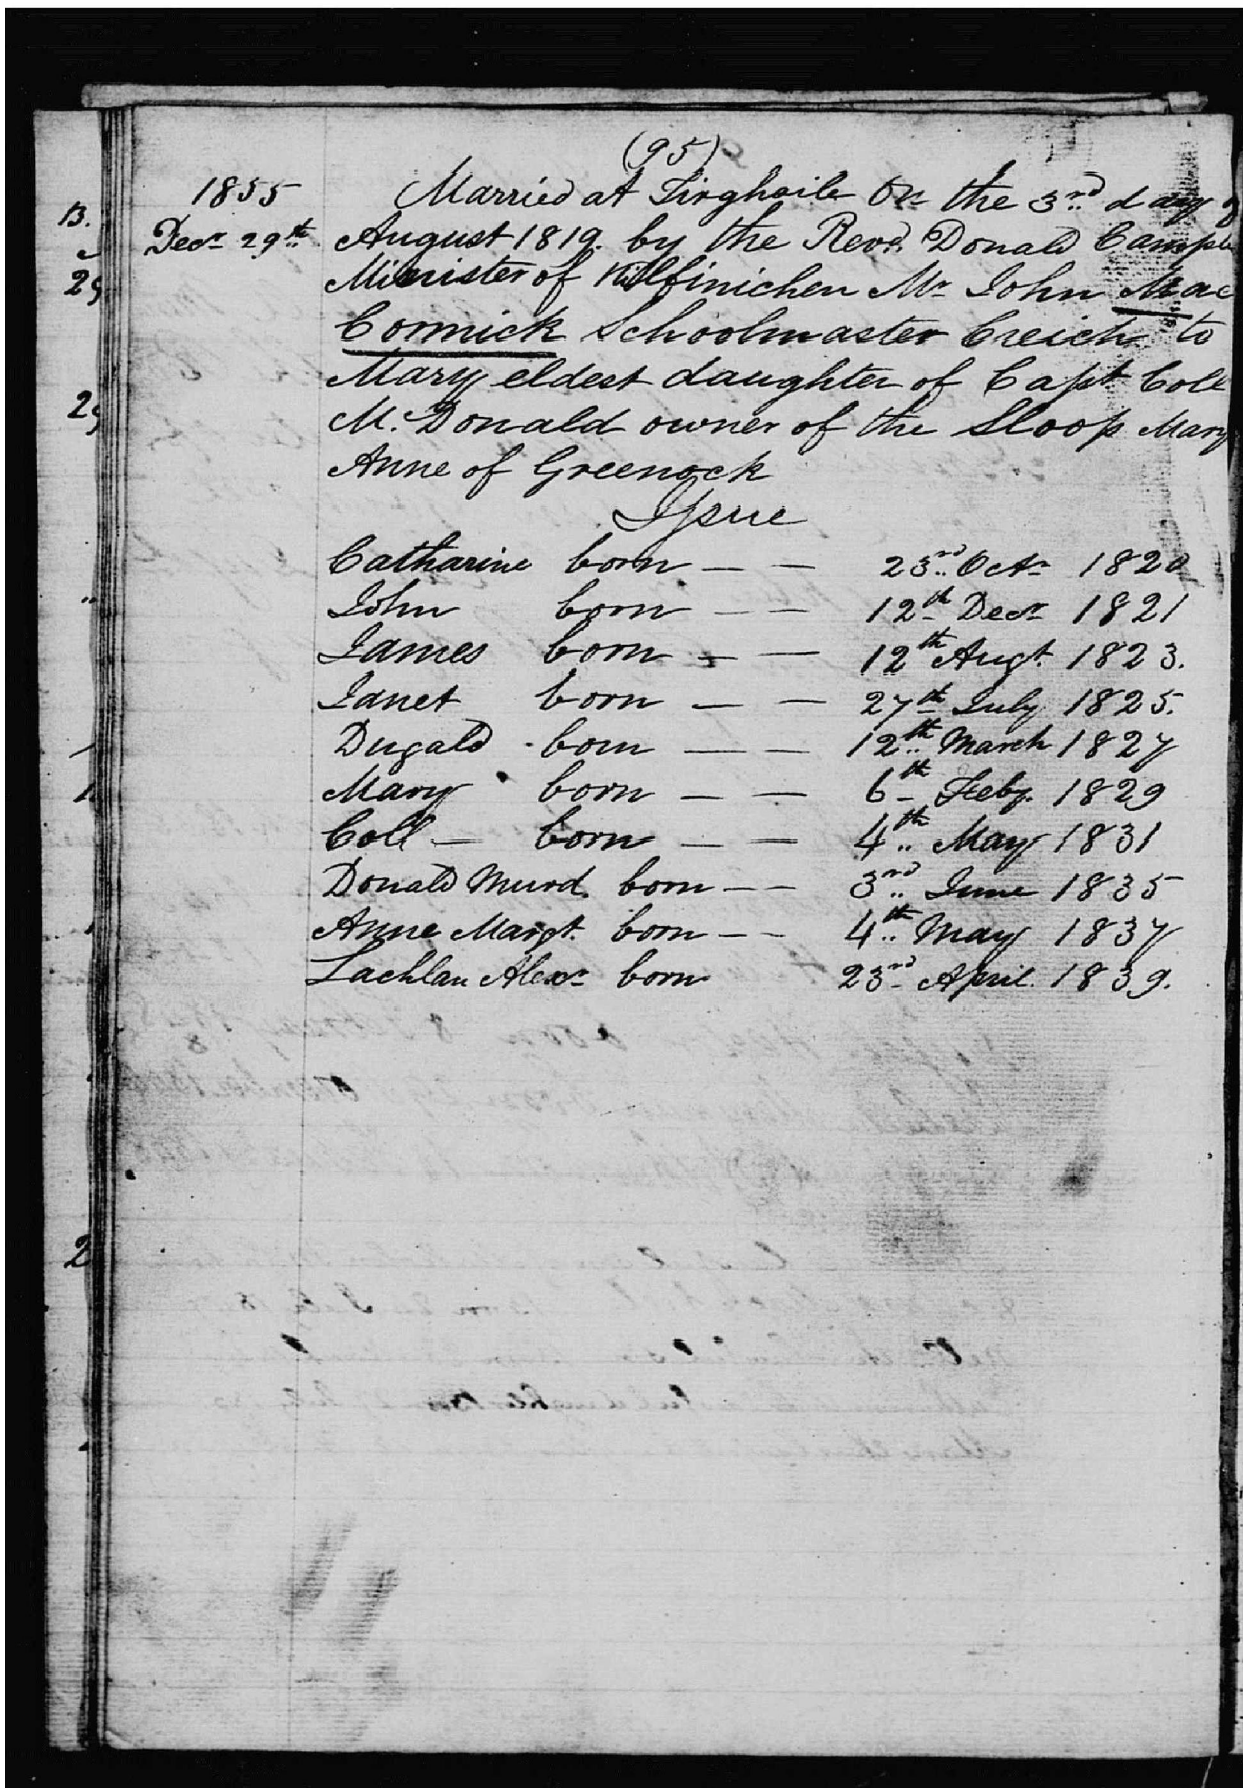 (95)
1855 Married at Tirghoile On the 3rd day of
Decr 29th August 1819. by the Revd. Donald Campbe
Minister of Kilfinichen Mr John Mac
Cormick Schoolmaster Creich to
Mary eldest daughter of Capt Coll
Mc.Donald owner of the Sloop Mary
Anne of Greenock
Issue
Catharine born — — 23rd Octr 1820
John born — — 12th Decr 1821
James born — — 12th Augt. 1823.
Janet born — — 27th July 1825.
Dugald born — — 12th March 1827
Mary born — — 6th Feby. 1829
Coll — born — — 4th May 1831
Donald Murd. born — — 3rd June 1835
Anne Margt. born — — 4th May 1837
Lachlan Alexr born 23rd April 1839.